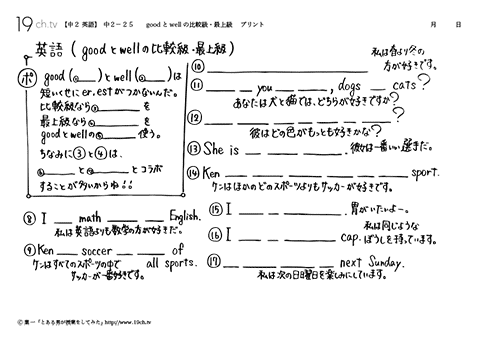 19ch.tv 【中2 英語】 中2-25 goodとwellの比較級・最上級 プリント 月 日
英語 (goodとwellの比較級・最上級)
ポ good(①___)とwell(②___)は
短いくせにer.estがつかないんだ。
比較級なら③___を
最上級なら④___を
goodとwellの⑤___使う。
ちなみに③と④は、
⑥___と⑦___とコラボ
することが多いからね!!
⑧ I ___ math ___ ___ English.
私は英語よりも数学の方が好きだ。
⑨ Ken ___ soccer ___ ___ of
all sports.
ケンはすべてのスポーツの中で
サッカーが一番好きです。
⑩ ___ 私は春より冬の
方が好きです。
⑪ ___ ___ you ___ ___, dogs ___ cats?
あなたは犬と猫では、どちらが好きですか?
⑫ ___ ___ ___ ___ ___ ___ ___?
彼はどの色がもっとも好きかな?
⑬ She is ___ ___ ___. 彼女は一番いい選手だ。
⑭ Ken ___ ___ ___ ___ ___ ___ sport.
ケンはほかのどのスポーツよりもサッカーが好きです。
⑮ I ___ ___ ___. 胃がいたいよー。
⑯ I ___ ___ ___ ___ cap. 私は同じような
ぼうしを持っています。
⑰ ___ ___ ___ ___ ___ next Sunday.
私は次の日曜日を楽しみにしています。
© 葉一「とある男が授業をしてみた」 http://www.19ch.tv